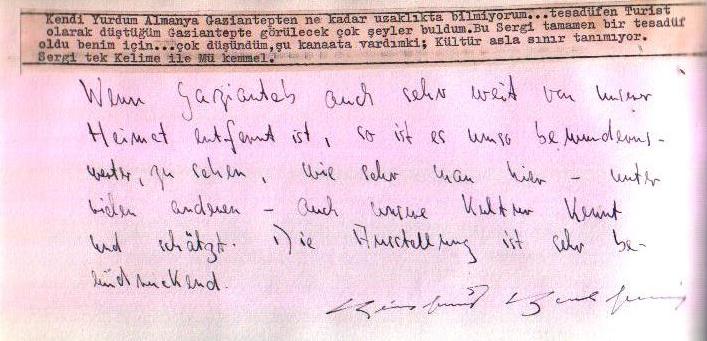 Kendi Yurdum Almanya Gaziantepten ne kadar uzaklıkta bilmiyorum...tesadüfen Turist
olarak düştüğüm Gaziantepte görülecek çok şeyler buldum.Bu Sergi tamamen bir tesadüf
oldu benim için...çok düşündüm,şu kanaata vardımki; Kültür asla sınır tanımıyor.
Sergi tek Kelime ile Mü kemmel.
Wenn Gazianteb auch sehr weit von unserer
Heimat entfernt ist, so ist es umso bewunderns-
werter, zu sehen, wie sehr man hier - unter
vielen anderen - auch unsere Kultur kennt
und schätzt. Die Ausstellung ist sehr be-
eindruckend.